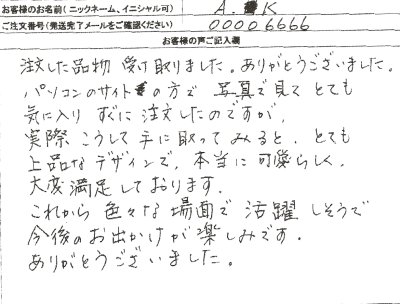 お客様のお名前(ニックネーム、イニシャル可) A. K
ご注文番号(発送完了メールをご確認ください) 00006666
お客様の声ご記入欄
注文した品物 受け取りました。ありがとうございました。
パソコンのサイトの方で 写真で見て とても
気に入り すぐに注文したのですが、
実際 こうして 手に取って みると、とても
上品な デザインで、本当に 可愛らしく、
大変満足しております。
これから 色々な 場面で 活躍 しそうで
今後の お出かけが 楽しみです。
ありがとうございました。